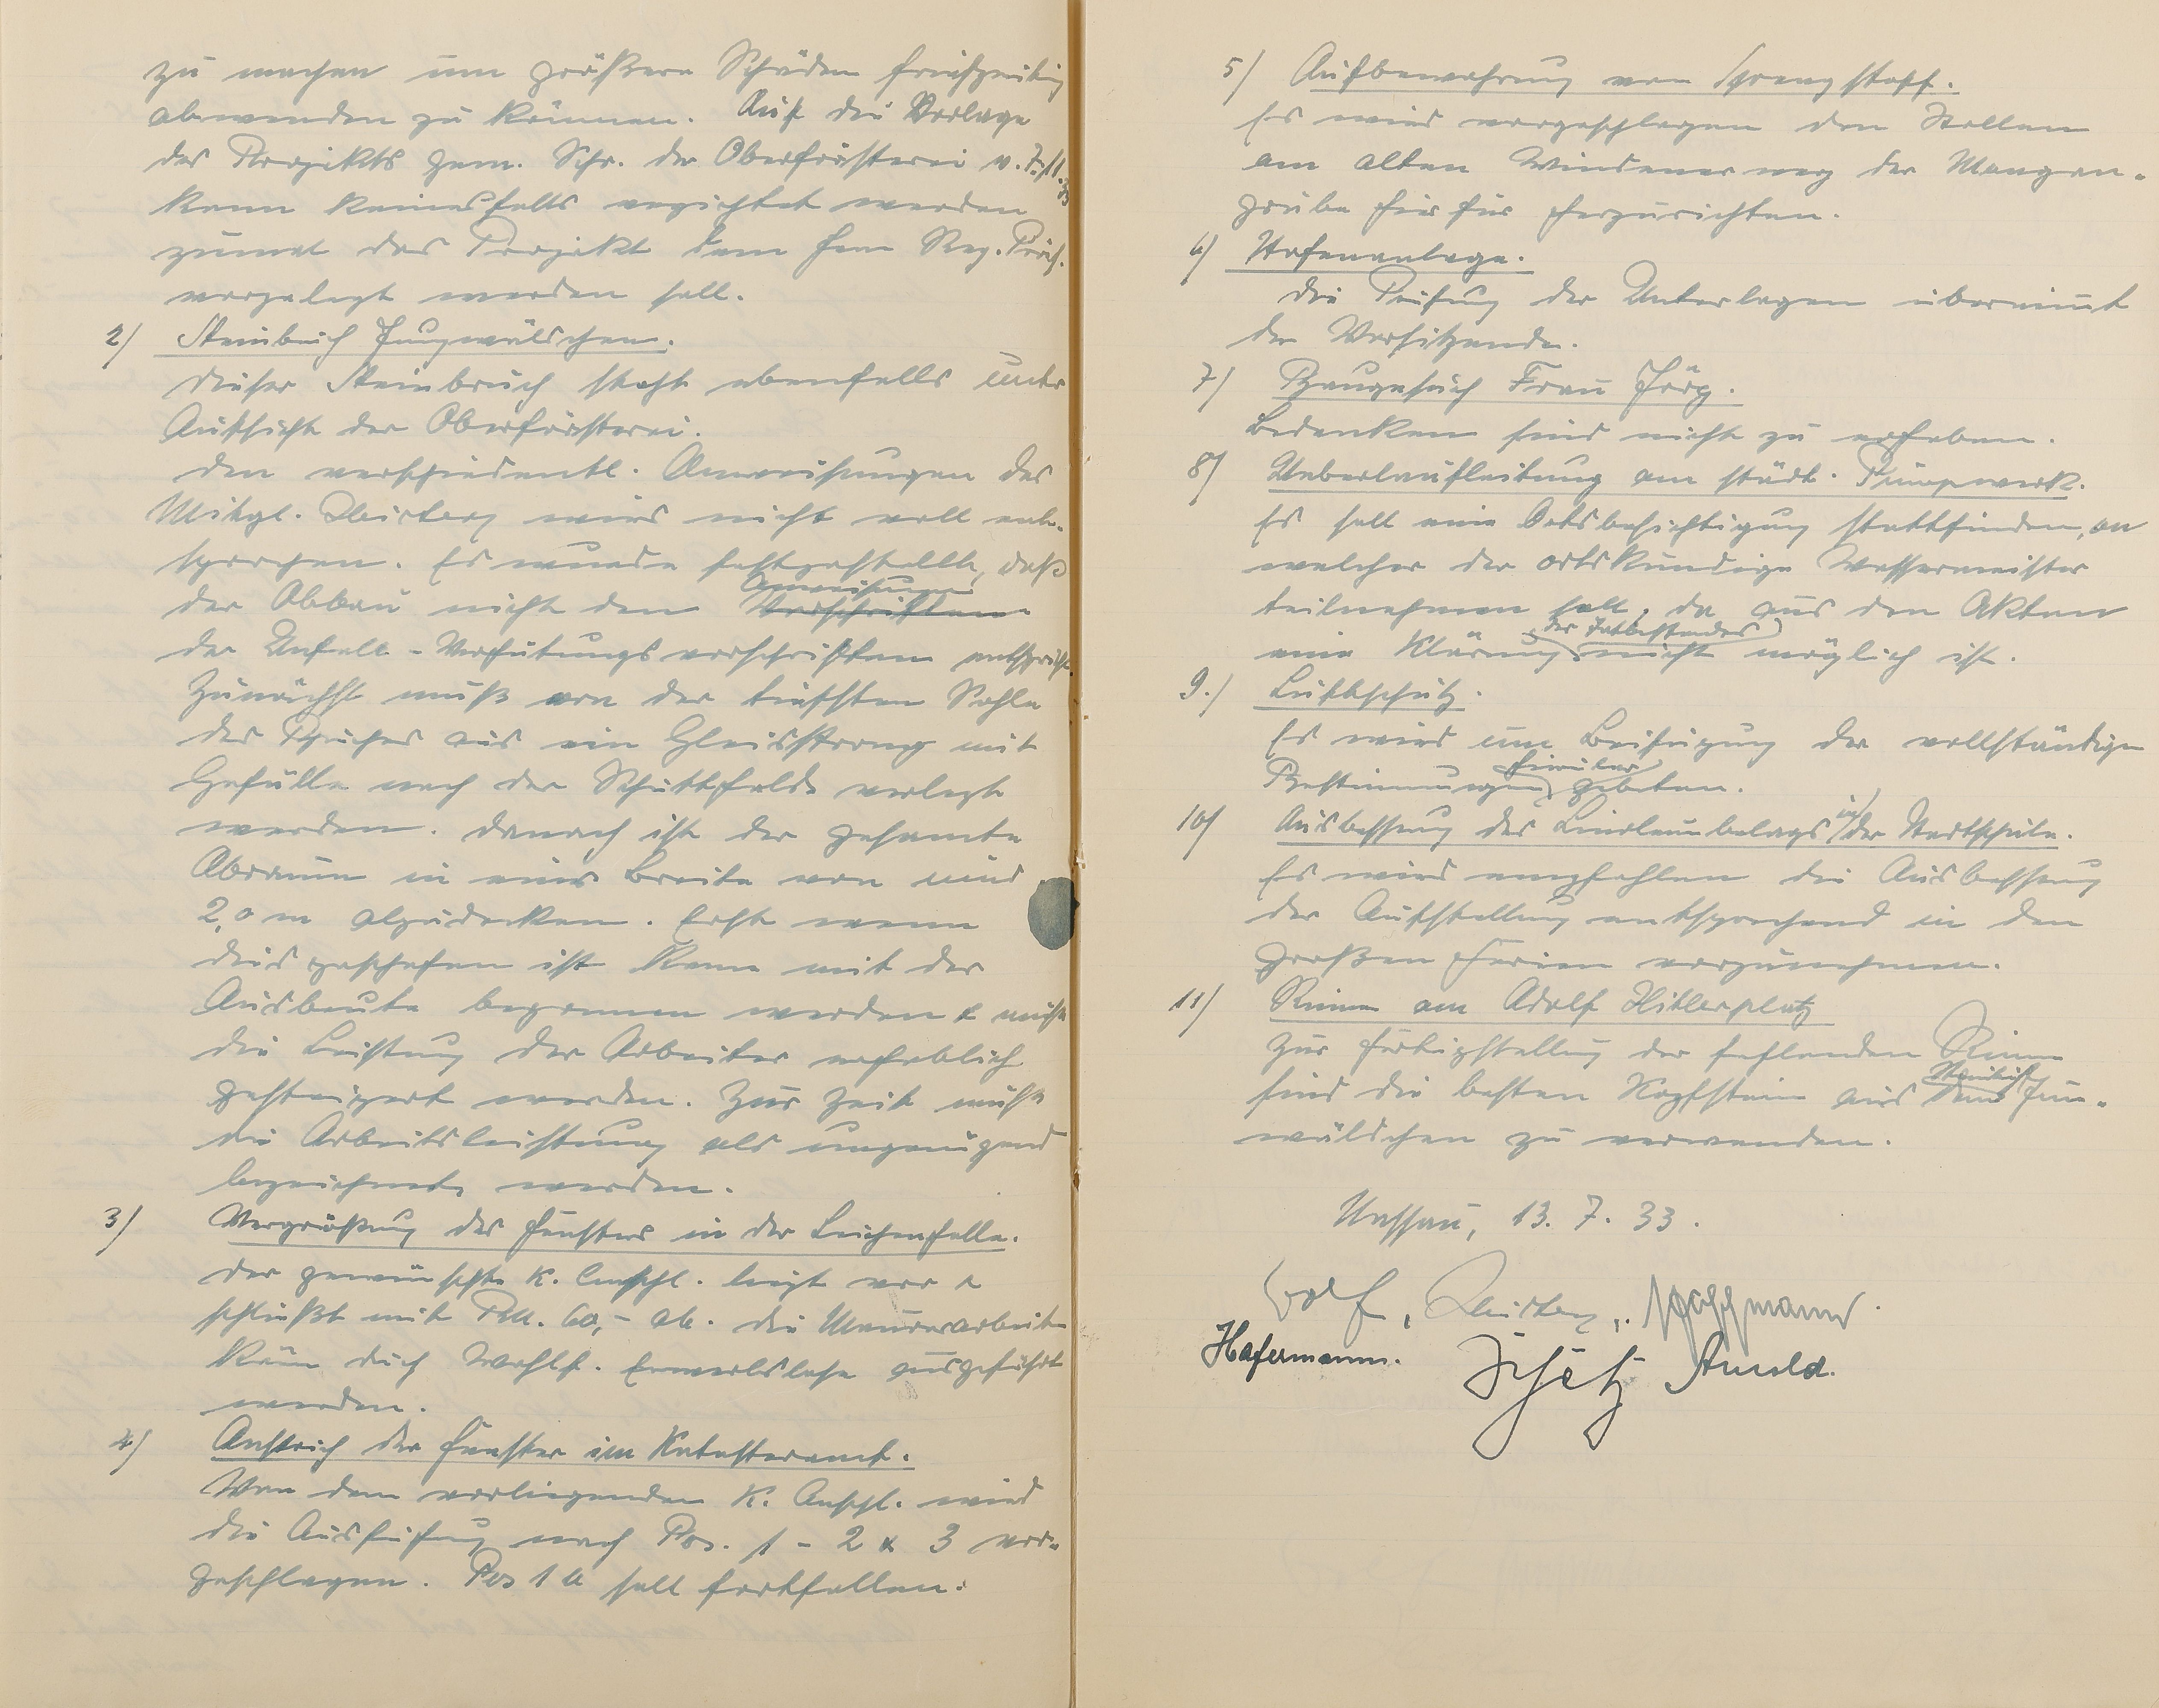 zu machen um größere Schäden frühzeitig
abwenden zu können. Auf die Vorlage
des Projekts gem. Schr. der Oberförsterei v. 7./11.33
kann keinesfalls verzichtet werden
zumal das Projekt dem Herrn Reg. Präs.
vorgelegt werden soll.
2) Steinbruch Jungwäldchen.
Dieser Steinbruch steht ebenfalls unter
Aufsicht der Oberförsterei.
Den verschiedentl. Anweisungen des
Mitgl. Leisterz wird nicht voll ent-
sprochen. Es wurde festgestellt, daß
der Abbau nicht den Vorschriften Anweisungen
der Unfall-Verhütungsvorschriften entspricht.
Zunächst muß von der tiefsten Sohle
des Bruches aus ein Gleisstrang mit
Gefälle nach der Schutthalde verlegt
werden. Danach ist der gesamte
Abraum in einer Breite von rund
2,0 m abzudecken. Erst wenn
dies geschehen ist kann mit der
Ausbeute begonnen werden & muß
die Leistung der Arbeiter erheblich
gesteigert werden. Zur Zeit muß
die Arbeitsleistung als ungenügend
bezeichnet werden.
3) Vergrößerung des Fensters in der Leichenhalle.
Der gewünschte K. Anschl. liegt vor &
schließt mit RM. 60,- ab. Die Maurerarbeiten
könn durch Wohlf. Erwerbslose ausgeführt
werden.
4) Anstrich der Fenster im Katasteramt.
Von dem vorliegenden K. Anschl. wird
die Ausführung nach Pos. 1 - 2 & 3 vor-
geschlagen. Pos 1a soll fortfallen.
5) Aufbewahrung von Sprengstoff.
Es wird vorgeschlagen den Stollen
am alten Windener weg der Mangan-
grube hierfür herzurichten.
6) Hafenanlage.
Die Prüfung der Unterlagen übernimmt
der Vorsitzende.
7) Baugesuch Frau Jörg.
Bedenken sind nicht zu erheben.
8) Ueberlaufleitung am städt. Pumpwerk.
Es soll eine Ortsbesichtigung stattfinden, an
welcher der ortskundige Wassermeister
teilnehmen soll, da aus den Akten
eine Klärung des Tatbestandes nicht möglich ist.
9.) Luftschutz.
Es wird um Beifügung der vollständigen
Bestimmungen hierüber gebeten.
10) Ausbesserung des Linoleumbelags in der Stadtschule.
Es wird empfohlen die Ausbesserung
der Aufstellung entsprechend in den
großen Ferien vorzunehmen.
11) Rinne am Adolf Hitlerplatz
Zur Fertigstellung der fehlenden Rinne
sind die besten Kopfstein aus Steinbruch Jung-
wäldchen zu verwenden.
Nassau, 13. 7. 33.
Hafermann. Arnold.